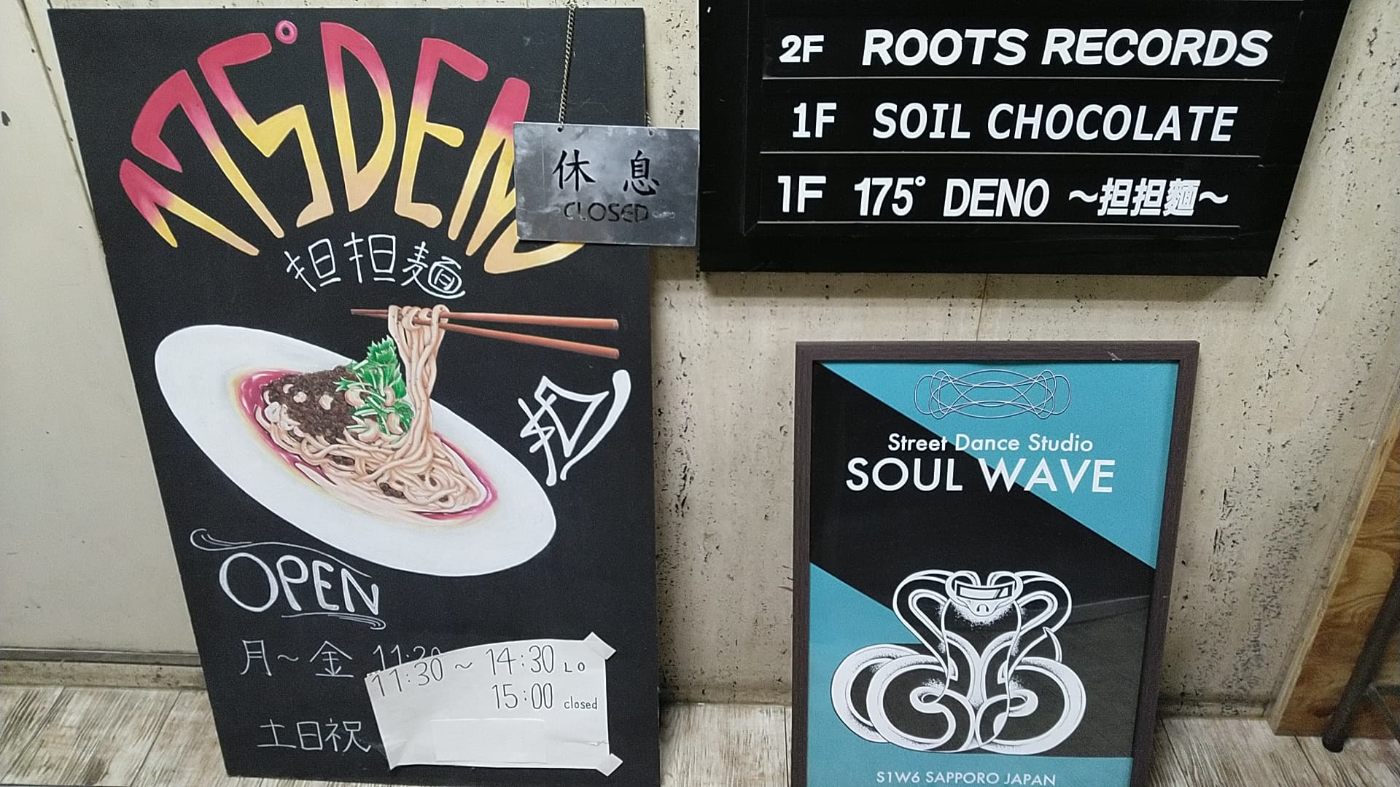 175°DENO
担担麺
担
OPEN
月～金 11:30 ～ 14:30 LO
15:00 closed
土日祝
休息
CLOSED
2F ROOTS RECORDS
1F SOIL CHOCOLATE
1F 175° DENO ～担担麺～
Street Dance Studio
SOUL WAVE
S1W6 SAPPORO JAPAN